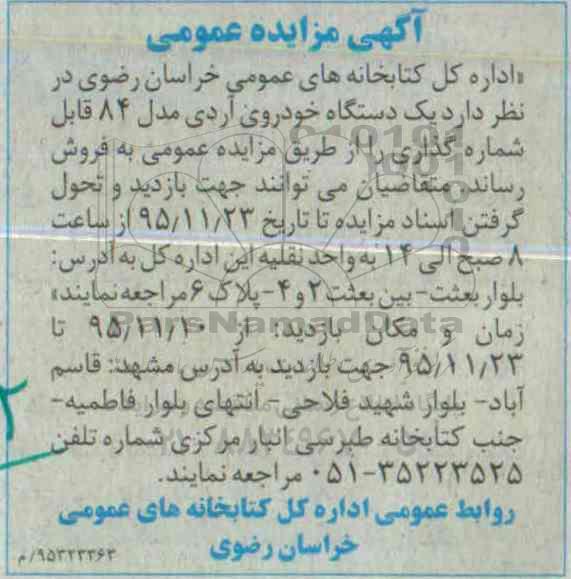 آگهی مزایده عمومی
«اداره کل کتابخانه های عمومی خراسان رضوی در
نظر دارد یک دستگاه خودروی آردی مدل ۸۴ قابل
شماره گذاری را از طریق مزایده عمومی به فروش
رساند. متقاضیان می توانند جهت بازدید و تحول
گرفتن اسناد مزایده تا تاریخ ۹۵/۱۱/۲۳ از ساعت
۸ صبح الی ۱۴ به واحد نقلیه این اداره کل به آدرس:
بلوار بعثت- بین بعثت ۲ و ۴ - پلاک ۶ مراجعه نمایند»
زمان و مکان بازدید: از ۹۵/۱۱/۱۰ تا
۹۵/۱۱/۲۳ جهت بازدید به آدرس مشهد: قاسم
آباد- بلوار شهید فلاحی- انتهای بلوار فاطمیه-
جنب کتابخانه طبرسی انبار مرکزی شماره تلفن
۰۵۱-۳۵۲۲۳۵۲۵ مراجعه نمایند.
روابط عمومی اداره کل کتابخانه های عمومی
خراسان رضوی
۹۵۳۲۳۳۶۳/م
ParsNamadData